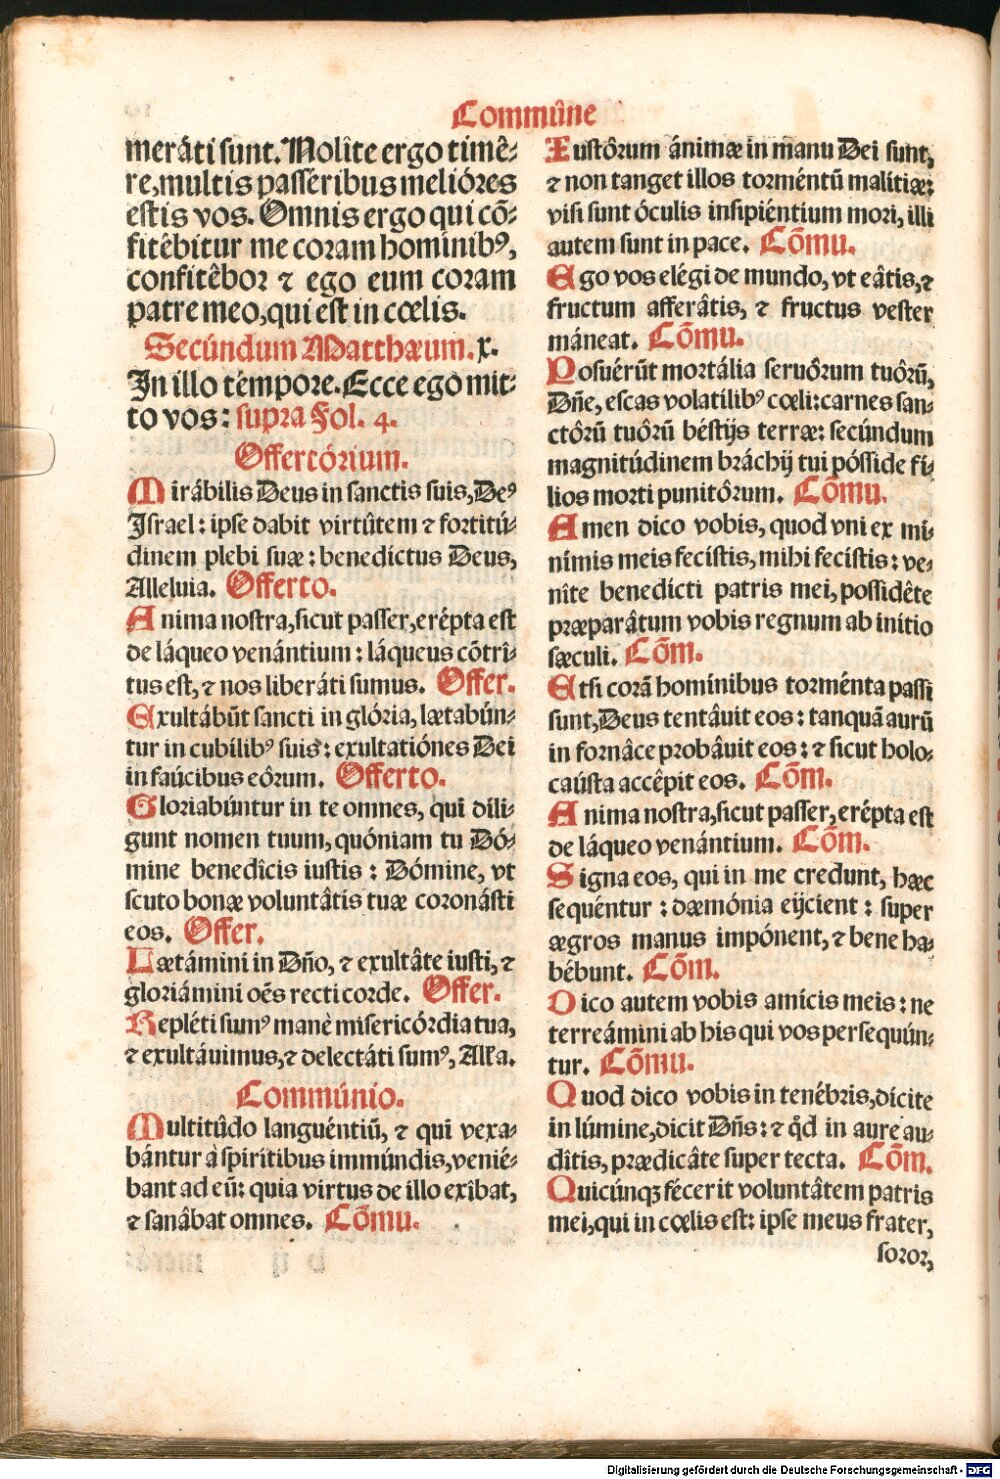 Commûne
meráti sunt. Nolîte ergo timê⸗
re, multis passéribus melióres
estis vos. Omnis ergo qui cō⸗
fitêbitur me coram homínibꝰ,
confitêbor ⁊ ego eum coram
patre meo, qui est in cœlis.
Secúndum Matthæum. x.
In illo témpore. Ecce ego mit⸗
to vos: supra Fol. 4.
Offertórium.
Mirábilis Deus in sanctis suis, Deꝰ
Israel: ipse dabit virtûtem ⁊ fortitú⸗
dinem plebi suæ: benedictus Deus,
Alleluia. Offerto.
Anima nostra, sicut passer, erépta est
de láqueo venántium: láqueus cōtrî⸗
tus est, ⁊ nos liberáti sumus. Offer.
Exultábūt sancti in glória, lætabún⸗
tur in cubílibꝰ suis: exultatiónes Dei
in faúcibus eôrum. Offerto.
Gloriabúntur in te omnes, qui díli⸗
gunt nomen tuum, quóniam tu Dó⸗
mine benedîcis iustis: Dómine, vt
scuto bonæ voluntâtis tuæ coronásti
eos. Offer.
Lætámini in Dño, ⁊ exultâte iusti, ⁊
gloriámini oēs recti corde. Offer.
Repléti sumꝰ manè misericórdia tua,
⁊ exultáuimus, ⁊ delectáti sumꝰ, Alła.
Commúnio.
Multitûdo languéntiū, ⁊ qui vexa⸗
bántur à spirítibus immúndis, venié⸗
bant ad eū: quia virtus de illo exîbat,
⁊ sanâbat omnes. Cōmu.
Iustôrum ánimæ in manu Dei sunt,
⁊ non tanget illos torméntū malítiæ:
visi sunt óculis insipiéntium mori, illi
autem sunt in pace. Cōmu.
Ego vos elégi de mundo, vt eâtis, ⁊
fructum afferâtis, ⁊ fructus vester
máneat. Cōmu.
Posuérūt mortália seruôrum tuôrū,
Dñe, escas volatílibꝰ cœli: carnes san⸗
ctôrū tuôrū béstijs terræ: secúndum
magnitúdinem bráchij tui pósside fi⸗
lios morti punitôrum. Cōmu.
Amen dico vobis, quod vni ex mi⸗
nimis meis fecístis, mihi fecístis: ve⸗
nîte benedicti patris mei, possidête
præparâtum vobis regnum ab inítio
sæculi. Cōm.
Etsi corā homínibus torménta passi
sunt, Deus tentâuit eos: tanquā aurū
in fornâce probâuit eos: ⁊ sicut holo⸗
caústa accêpit eos. Cōm.
Anima nostra, sicut passer, erépta est
de láqueo venántium. Cōm.
Signa eos, qui in me credunt, hæc
sequéntur: dæmónia eijcient: super
ægros manus impónent, ⁊ bene ha⸗
bébunt. Cōm.
Dico autem vobis amícis meis: ne
terreámini ab his qui vos persequún⸗
tur. Cōmu.
Quod dico vobis in tenébris, dícite
in lúmine, dicit Dñs: ⁊ qđ in aure au⸗
dîtis, prædicâte super tecta. Cōm.
Quicúnqꝫ fécerit voluntâtem patris
mei, qui in cœlis est: ipse meus frater,
soror,
Digitalisierung gefördert durch die Deutsche Forschungsgemeinschaft - DFG